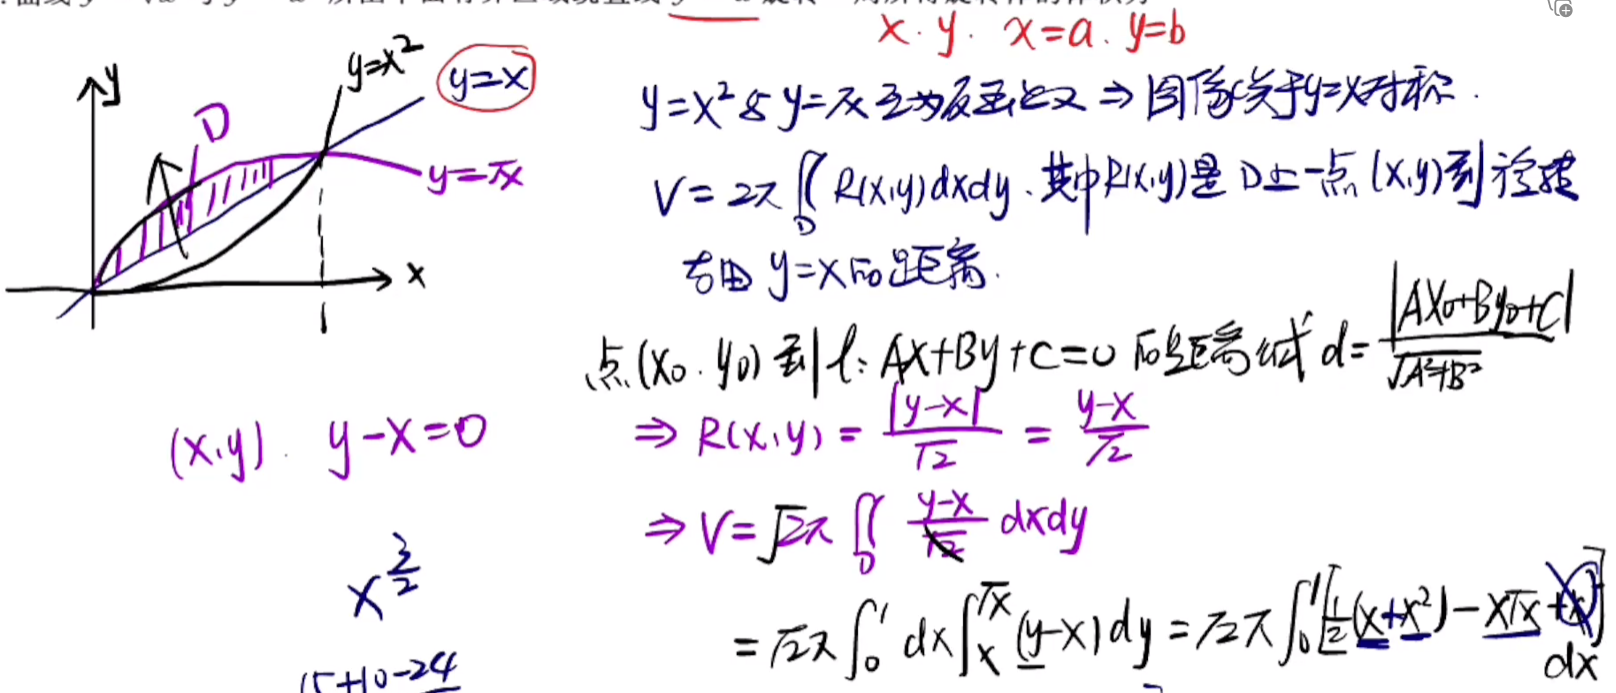 x. y. x=a. y=b
y
y=x²
y=x
D
y=√x
x
y=x²与y=√x互为反函数 ⇒ 图像关于y=x对称.
V=2π∬_D R(x,y)dxdy. 其中R(x,y)是D上一点(x,y)到旋转
轴 y=x的距离.
点(x₀.y₀)到l: Ax+By+C=0的距离公式 d=|Ax₀+By₀+C|/√(A²+B²)
(x,y). y-x=0
⇒ R(x,y) = |y-x|/√2 = (y-x)/√2
⇒ V=√2π∬_D (y-x)/√2 dxdy
x^(3/2)
=√2π∫₀¹dx∫ₓ^√x (y-x)dy=√2π∫₀¹[½(x+x²)-x√x]dx
15+10-24